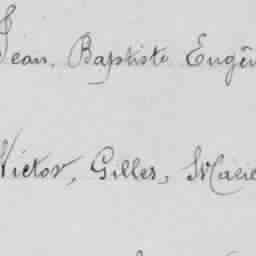 Jean, Baptiste Eugèn
Victor, Gilles, Marie